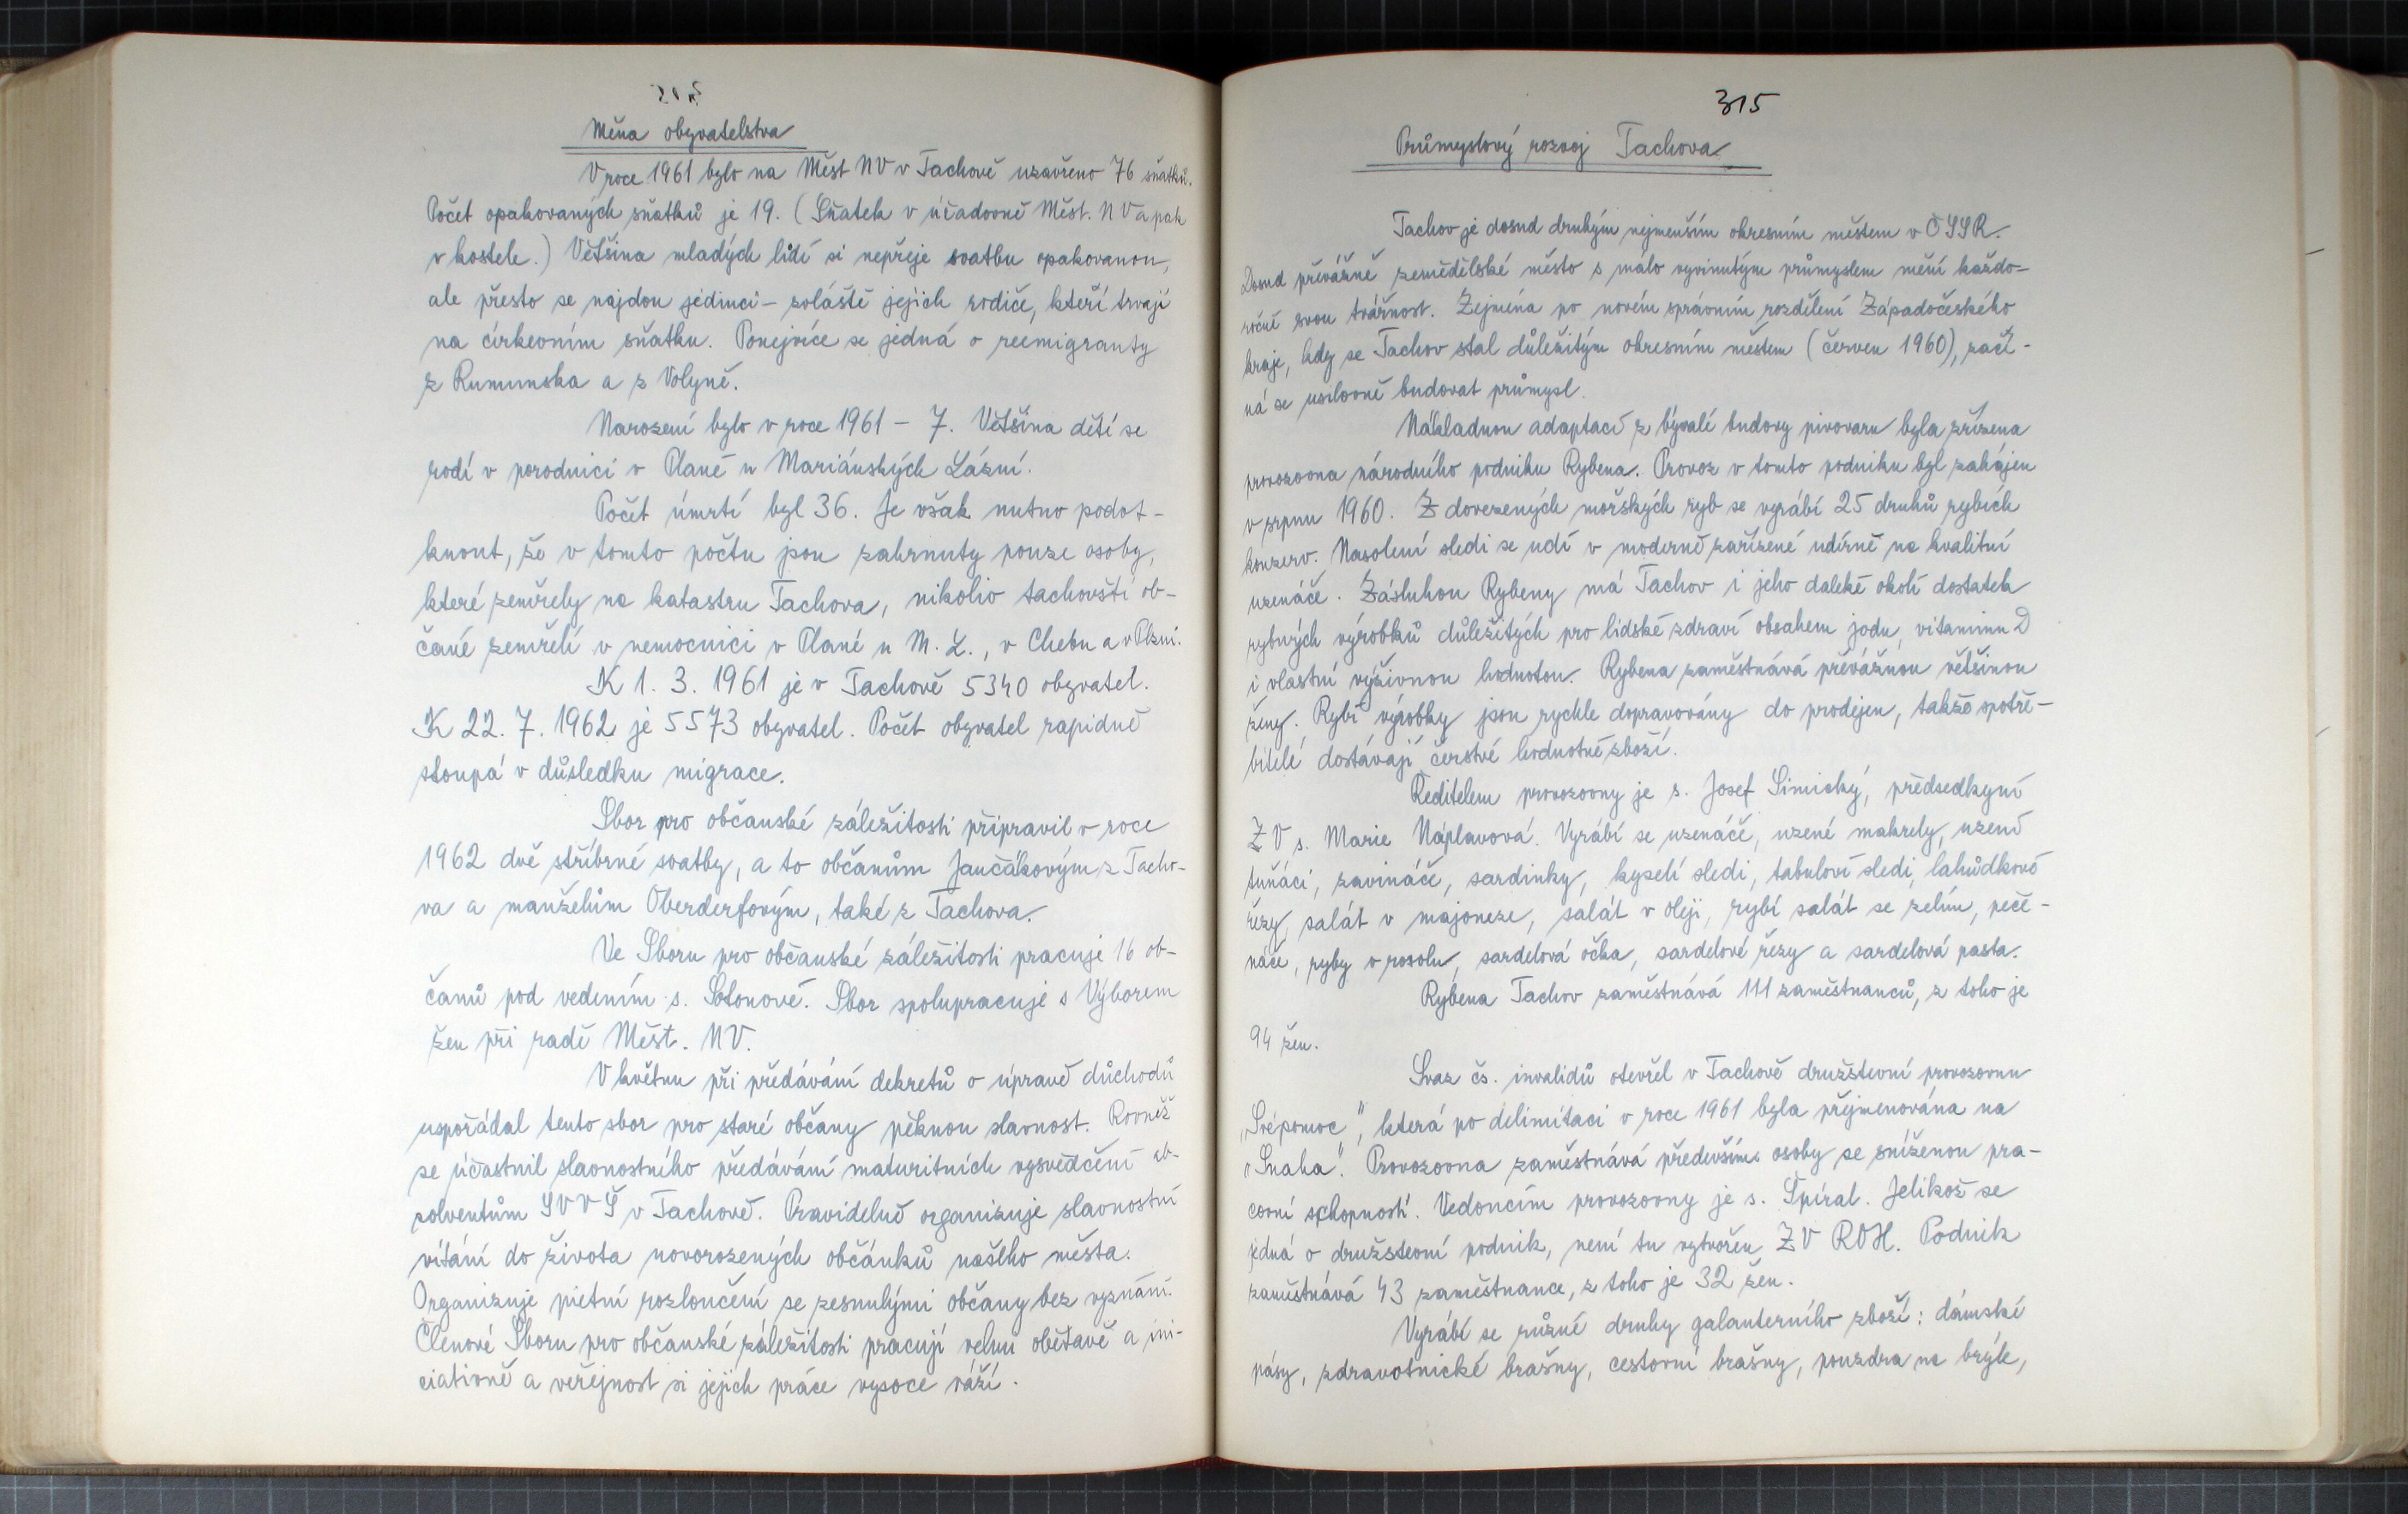 Měna obyvatelstva
V roce 1961 bylo na Měst NV v Tachově uzavřeno 76 sňatků.
Počet opakovaných sňatků je 19. (Sňatek v úřadovně Měst. NV a pak
v kostele.) Většina mladých lidí si nepřeje svatbu opakovanou,
ale přesto se najdou jedinci - zoláště jejich rodiče, kteří trvají
na církevním sňatku. Ponejvíce se jedná o reemigranty
z Rumunska a z Volyně.
Narození bylo v roce 1961 - 7. Většina dětí se
rodí v porodnici v Plané u Mariánských Lázní.
Počet úmrtí byl 36. Je však nutno podot-
knout, že v tomto počtu jsou zahrnuty pouze osoby,
které zemřely na katastru Tachova, nikoliv tachovští ob-
čané zemřelí v nemocnici v Plané u M. L., v Chebu a v Plzni.
K 1. 3. 1961 je v Tachově 5340 obyvatel.
K 22. 7. 1962 je 5573 obyvatel. Počet obyvatel rapidně
stoupá v důsledku migrace.
Sbor pro občanské záležitosti připravil v roce
1962 dvě stříbrné svatby, a to občanům Jančákovým z Tacho-
va a manželům Oberderfovým, také z Tachova.
Ve Sboru pro občanské záležitosti pracuje 16 ob-
čanů pod vedením s. Šotonové. Sbor spolupracuje s Výborem
žen při radě Měst. NV.
V květnu při předávání dekretů o úpravě důchodů
uspořádal tento sbor pro staré občany pěknou slavnost. Rovněž
se účastnil slavnostního předávání maturitních vysvědčení ab-
solventům SVVŠ v Tachově. Pravidelně organizuje slavnostní
vítání do života novorozených občánků našeho města.
Organizuje pietní rozloučení se zesnulými občany bez vyznání.
Členové Sboru pro občanské záležitosti pracují velmi obětavě a ini-
ciativně a veřejnost si jejich práce vysoce váží.
315
Průmyslový rozvoj Tachova
Tachov je dosud druhým nejmenším okresním městem v ČSSR.
Dosud převážně zemědělské město s málo vyvinutým průmyslem mění každo-
ročně svou tvářnost. Zejména po novém správním rozdělení Západočeského
kraje, kdy se Tachov stal důležitým okresním městem (červen 1960), začí-
ná se usilovně budovat průmysl.
Nákladnou adaptací z bývalé budovy pivovaru byla zřízena
provozovna národního podniku Rybena. Provoz v tomto podniku byl zahájen
v srpnu 1960. Z dovezených mořských ryb se vyrábí 25 druhů rybích
konzerv. Nasolení sledi se udí v moderně zařízené udírně na kvalitní
uzenáče. Zásluhou Rybeny má Tachov i jeho daleké okolí dostatek
rybných výrobků důležitých pro lidské zdraví obsahem jodu, vitaminu D
i vlastní výživnou hodnotou. Rybena zaměstnává převážnou většinou
ženy. Rybí výrobky jsou rychle dopravovány do prodejen, takže spotře-
bitelé dostávají čerstvé hodnotné zboží.
Ředitelem provozovny je s. Josef Simický, předsedkyní
ZV s. Marie Náplavová. Vyrábí se uzenáče, uzené makrely, uzení
tuňáci, zavináče, sardinky, kyselí sledi, tabuloví sledi, lahůdkové
řezy, salát v majoneze, salát v oleji, rybí salát se zelím, peče-
náče, ryby v rosolu, sardelová očka, sardelové řezy a sardelová pasta.
Rybena Tachov zaměstnává 111 zaměstnanců, z toho je
94 žen.
Svaz čs. invalidů otevřel v Tachově družstevní provozovnu
„Svépomoc", která po delimitaci v roce 1961 byla přejmenována na
„Snaha". Provozovna zaměstnává především osoby se sníženou pra-
covní schopností. Vedoucím provozovny je s. Špíral. Jelikož se
jedná o družstevní podnik, není tu vytvořen ZV ROH. Podnik
zaměstnává 43 zaměstnance, z toho je 32 žen.
Vyrábí se různé druhy galanterního zboží: dámské
pásy, zdravotnické brašny, cestovní brašny, pouzdra na brýle,